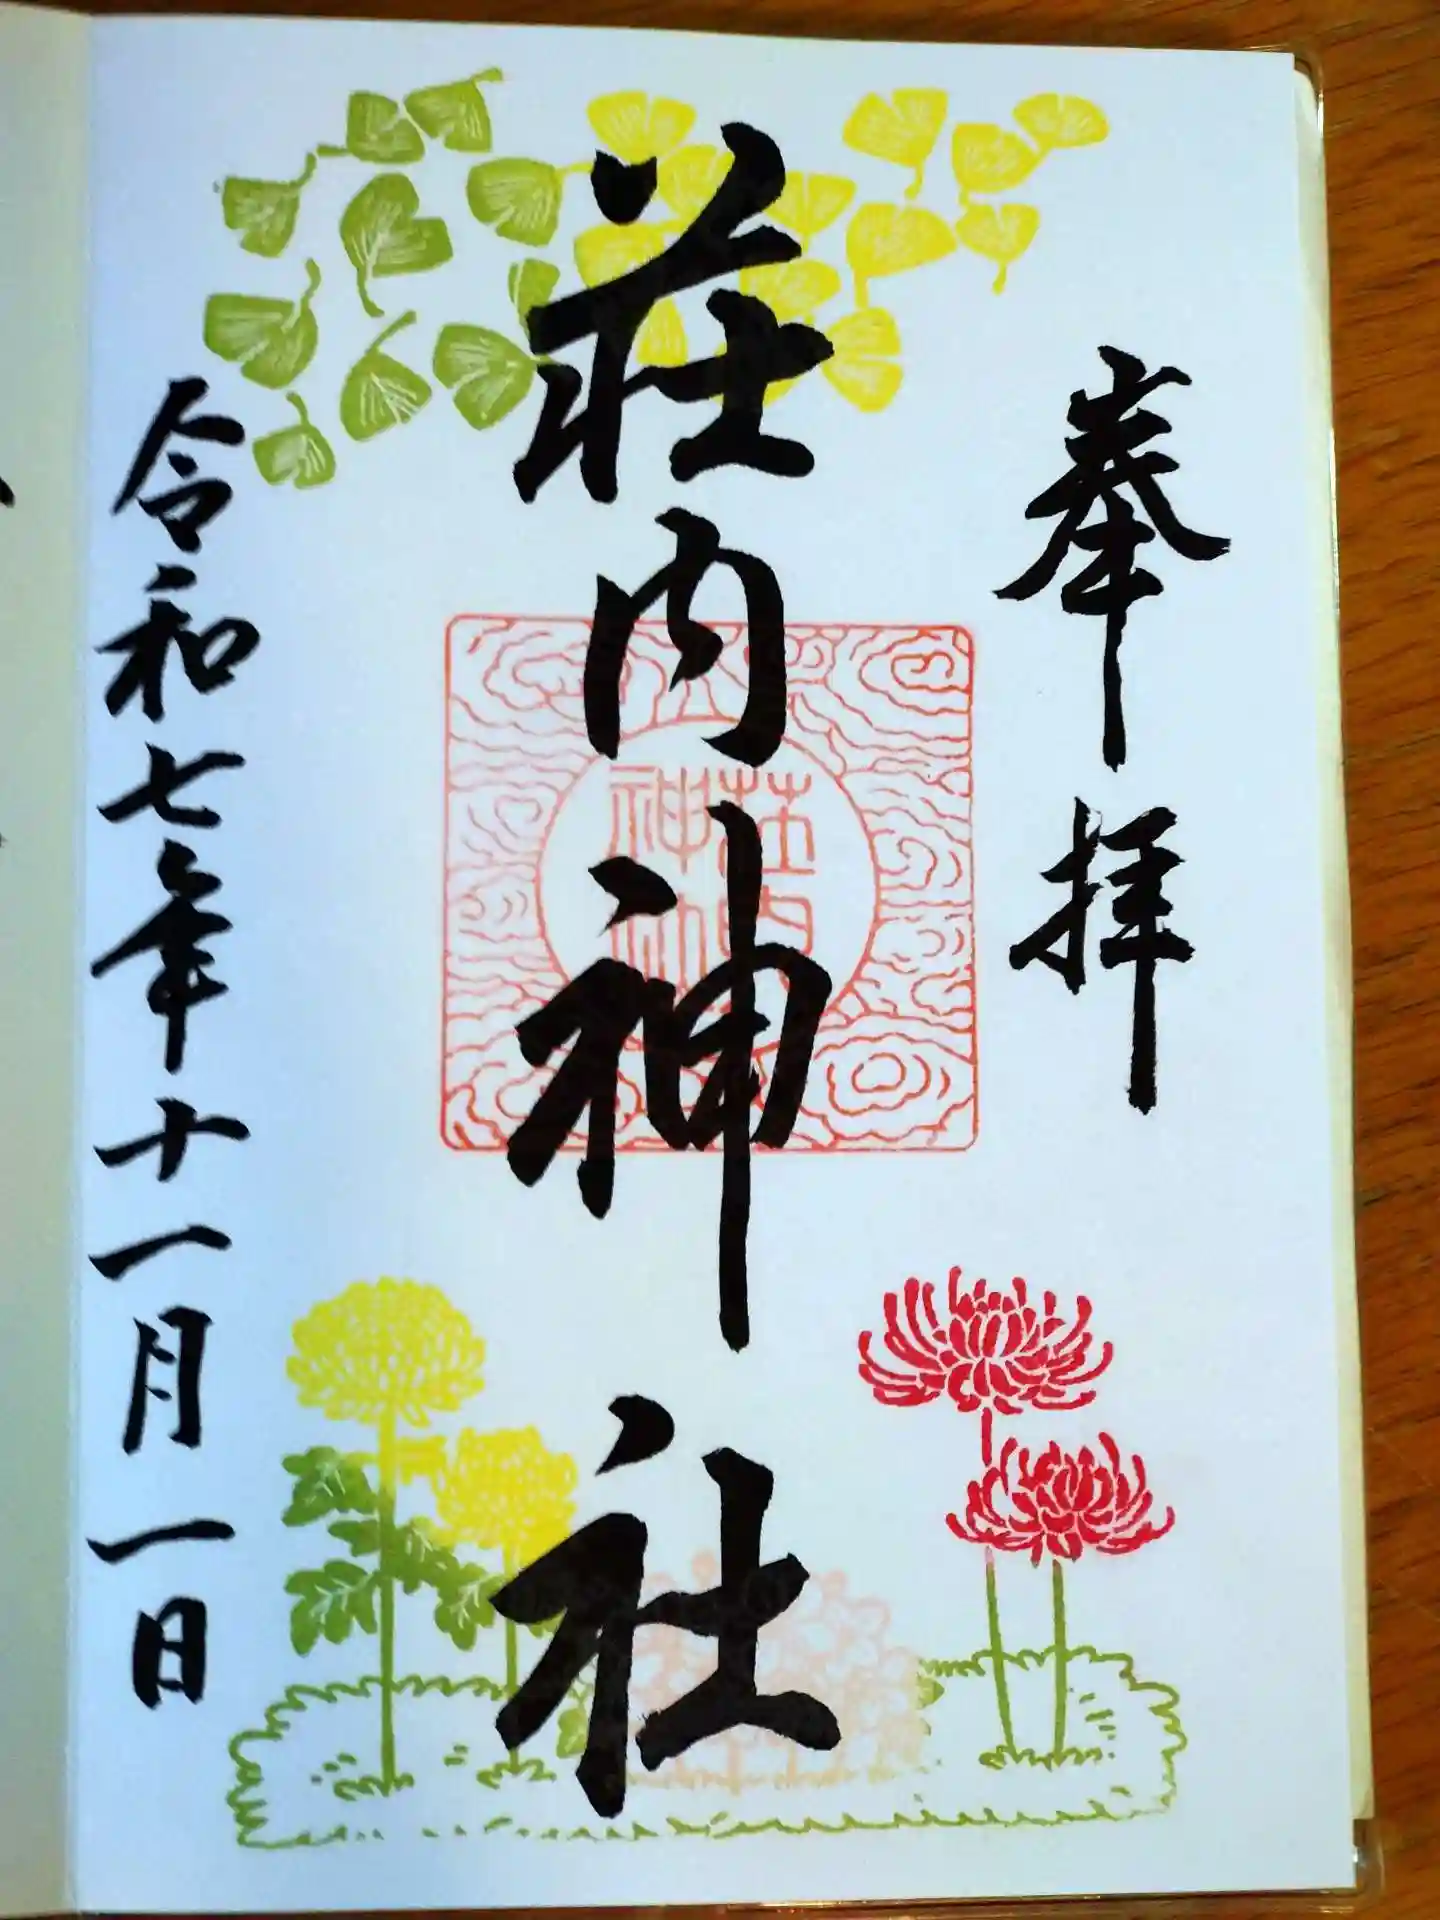 奉拝
荘内神社
荘内
神社
令和七年十一月一日